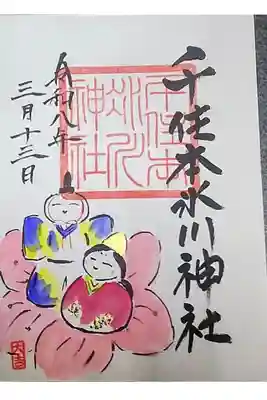 千住本氷川神社
千住本
氷川
神社
令和八年
三月十三日